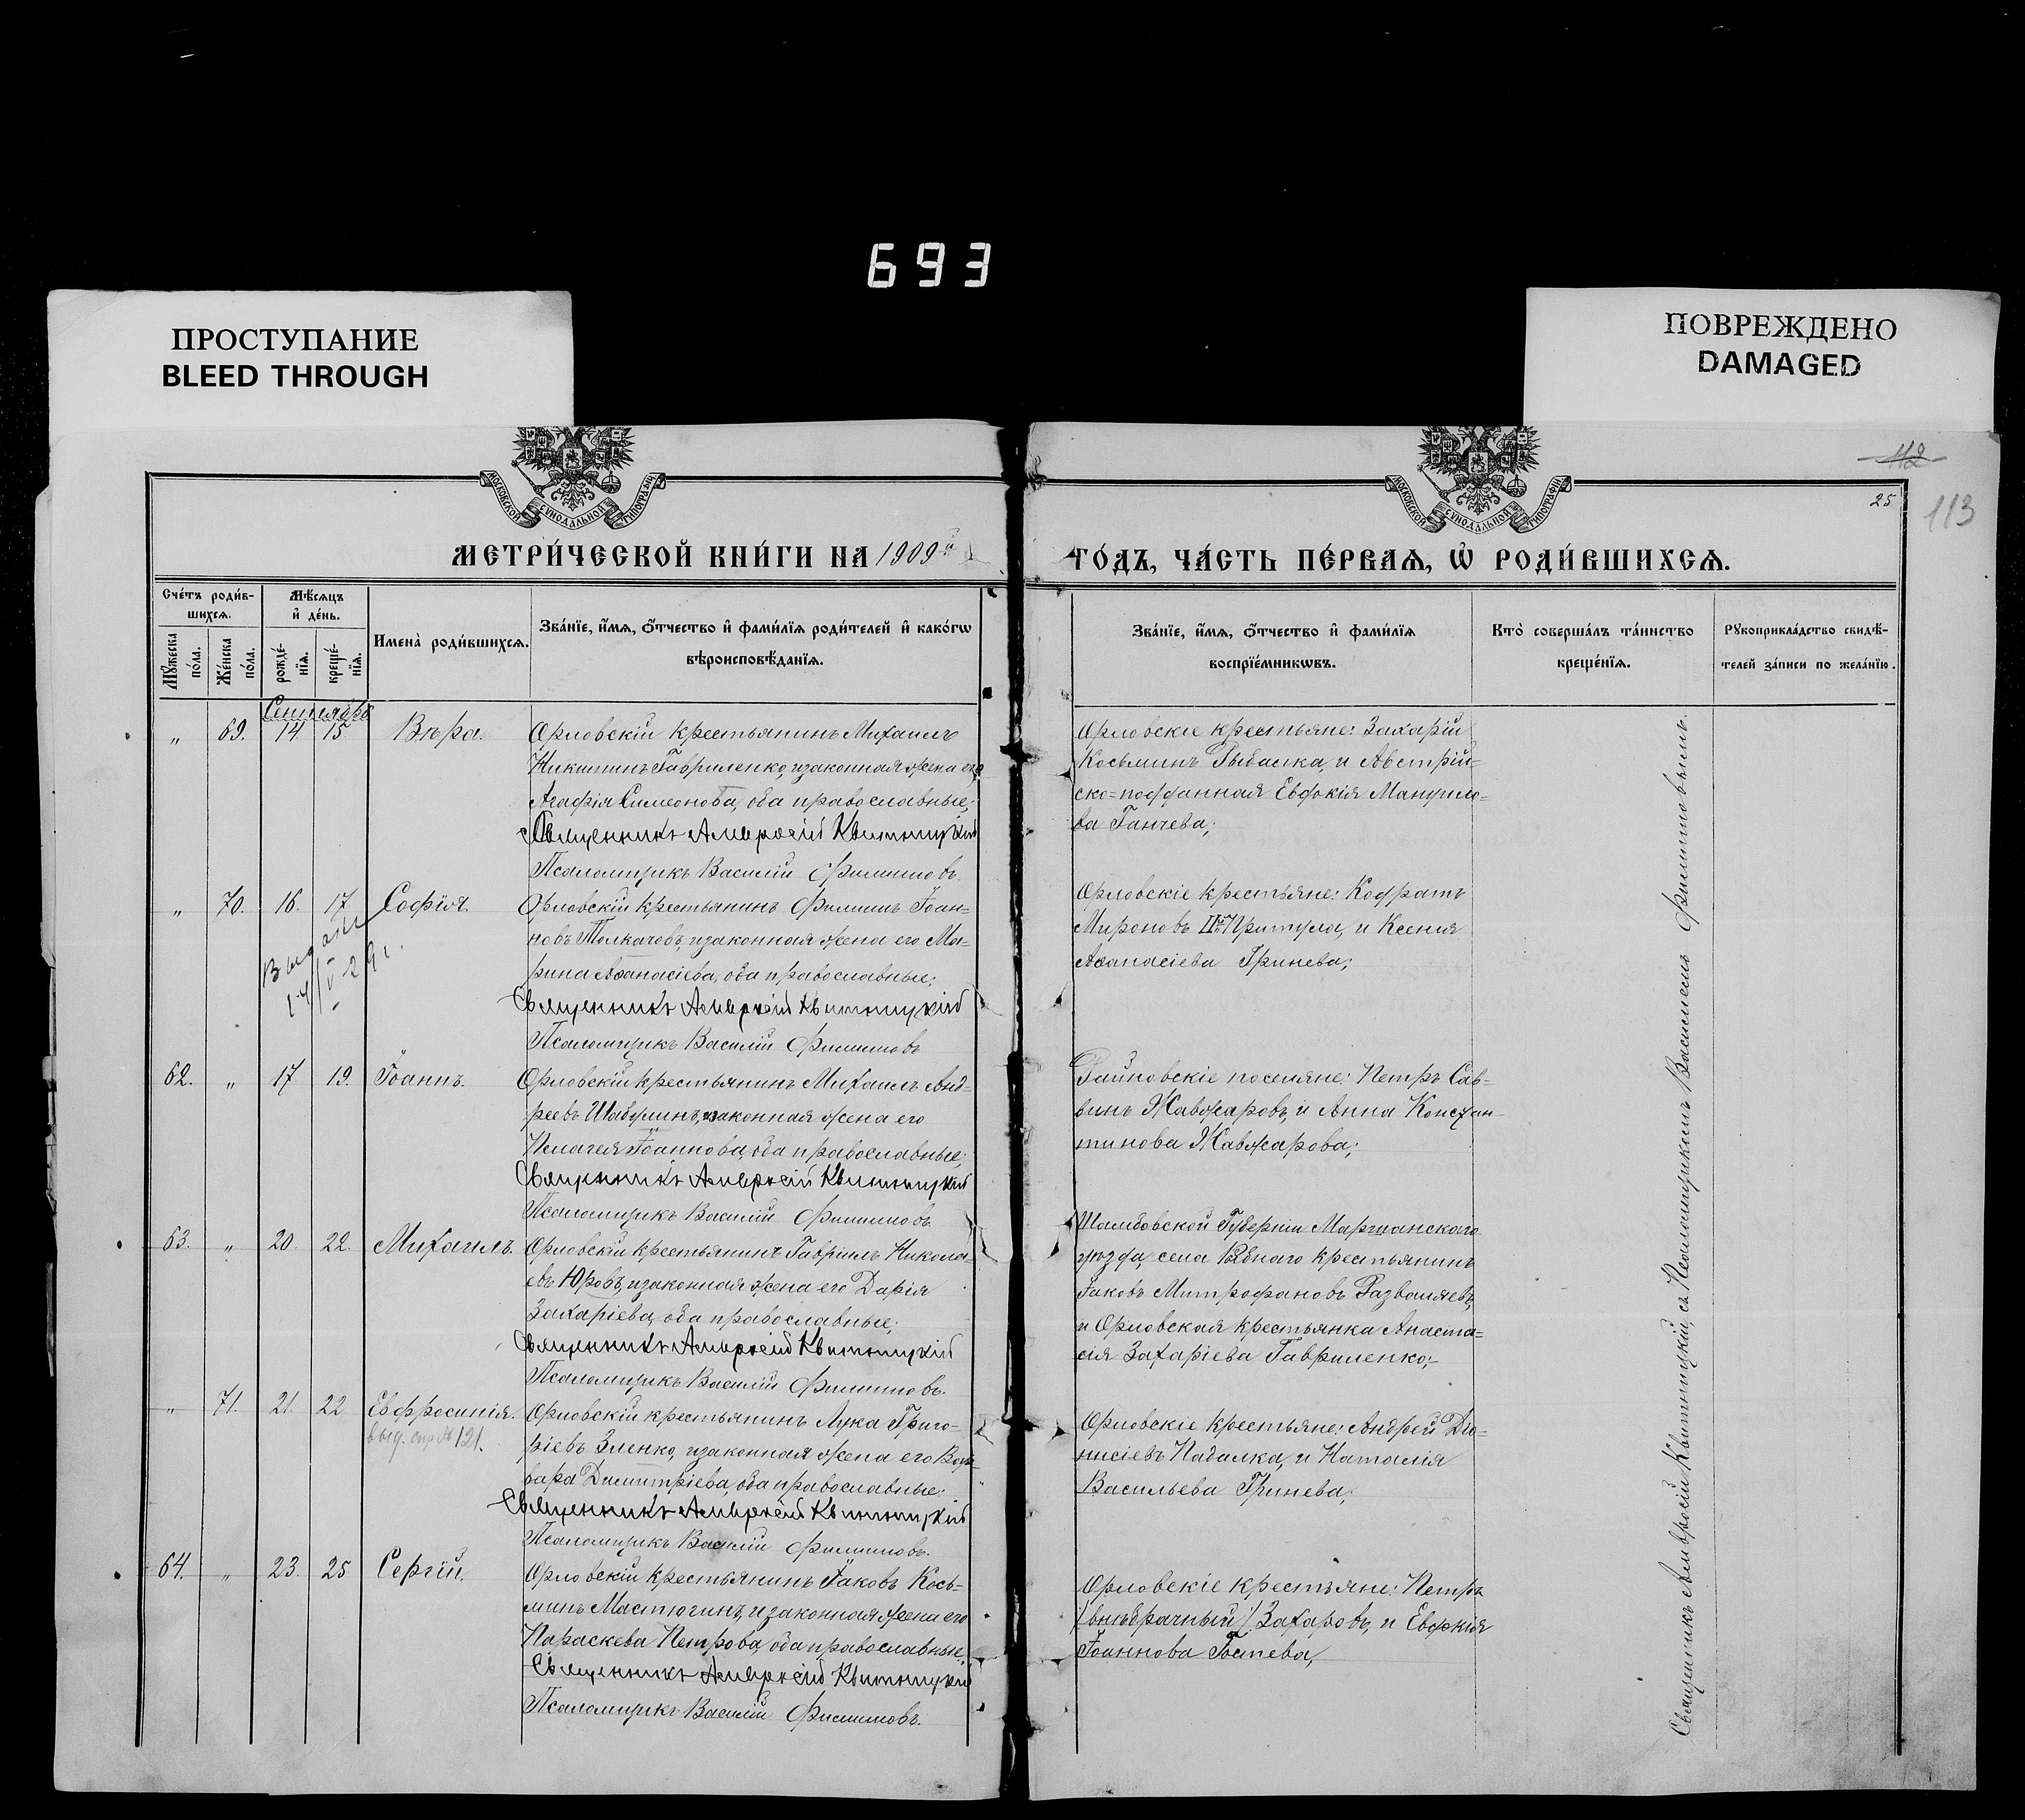 693
ПРОСТУПАНИЕ
BLEED THROUGH
ПОВРЕЖДЕНО
DAMAGED
МОСКОВСКОЙ СУНОДАЛЬНОЙ ТИПОГРАФІИ
МОСКОВСКОЙ СУНОДАЛЬНОЙ ТИПОГРАФІИ
112
25
113
МЕТРИ́ЧЕСКОЙ КНИ́ГИ НА 1909й
ГО́ДЪ, ЧА́СТЬ ПЕ́РВАѦ, Ѡ҆ РОДИ́ВШИХСѦ.
Сче́тъ роди́в-
шихсѧ.
Мꙋ́жеска по́ла.
Же́нска по́ла.
Мѣ́сѧцъ
и҆ де́нь.
рожде́-
нїѧ.
креще́-
нїѧ.
Имена̀ роди́вшихсѧ.
Зва́нїе, и҆́мѧ, ѻ҆́тчество и҆ фами́лїѧ роди́телей и҆ како́гѡ
вѣроисповѣ́данїѧ.
Зва́нїе, и҆́мѧ, ѻ҆́тчество и҆ фами́лїѧ
воспрїе́мникѡвъ.
Кто̀ соверша́лъ та́инство
креще́нїѧ.
Рꙋкоприкла́дство свидѣ́-
телей за́писи по жела́нїю.
Сентябрь
„ 69. 14 15 Вѣра.
Орловскій крестьянинъ Михаилъ
Никитинъ Гавриленко, и законная жена его
Агафія Симеонова, оба православные;
Священникъ Амвросій Квитницкій
Псаломщикъ Василій Филипповъ.
Орловскіе крестьяне: Захарій
Косьминъ Рыбалка, и Австрій=
ско=подданная Евдокія Мануило=
ва Ганчева;
„ 70. 16. 17 Софія.
Выдано
14/V-29г.
Орловскій крестьянинъ Филиппъ Іоан=
новъ Толкачовъ, и законная жена его Ма=
рина Аѳанасіева, оба православные;
Священникъ Амвросій Квитницкій
Псаломщикъ Василій Филипповъ
Орловскіе крестьяне: Кодратъ
Мироновъ IIй Притула, и Ксенія
Аѳанасіева Гринева;
62. „ 17 19. Іоаннъ.
Орловскій крестьянинъ Михаилъ Анд=
реевъ Шабулинъ, и законная жена его
Пелагея Іоаннова, оба православные;
Священникъ Амвросій Квитницкій
Псаломщикъ Василій Филипповъ.
Райновскіе поселяне: Петръ Сав=
винъ Жавжаровъ, и Анна Констан=
тинова Жавжарова;
63. „ 20. 22. Михаилъ.
Орловскій крестьянинъ Гавріилъ Никола=
евъ Юровъ, и законная жена его Дарія
Захаріева, оба православные;
Священникъ Амвросій Квитницкій
Псаломщикъ Василій Филипповъ.
Тамбовской Губерніи Моршанскаго
уѣзда, села крестьянинъ
Іаковъ Митрофановъ Разваляевъ,
и Орловская крестьянка Анаста=
сія Захаріева Гавриленко;
„ 71. 21. 22 Евфросинія.
выд. спр № 121.
Орловскій крестьянинъ Лука Григо=
ріевъ Зленко, и законная жена его Вар=
вара Димитріева, оба православные;
Священникъ Амвросій Квитницкій
Псаломщикъ Василій Филипповъ.
Орловскіе крестьяне: Андрей Діо=
нисіевъ Падалка, и Наталія
Васильева Гринева;
64. „ 23. 25 Сергій.
Орловскій крестьянинъ Іаковъ Кось=
минъ Мастюгинъ, и законная жена его
Параскева Петрова, оба православные;
Священникъ Амвросій Квитницкій
Псаломщикъ Василій Филипповъ.
Орловскіе крестьяне: Петръ
/внѣбрачный/ Захаровъ, и Евдокія
Іоаннова Гостева,
Священникъ Амвросій Квитницкій, съ Псаломщикомъ Василіемъ Филипповымъ.